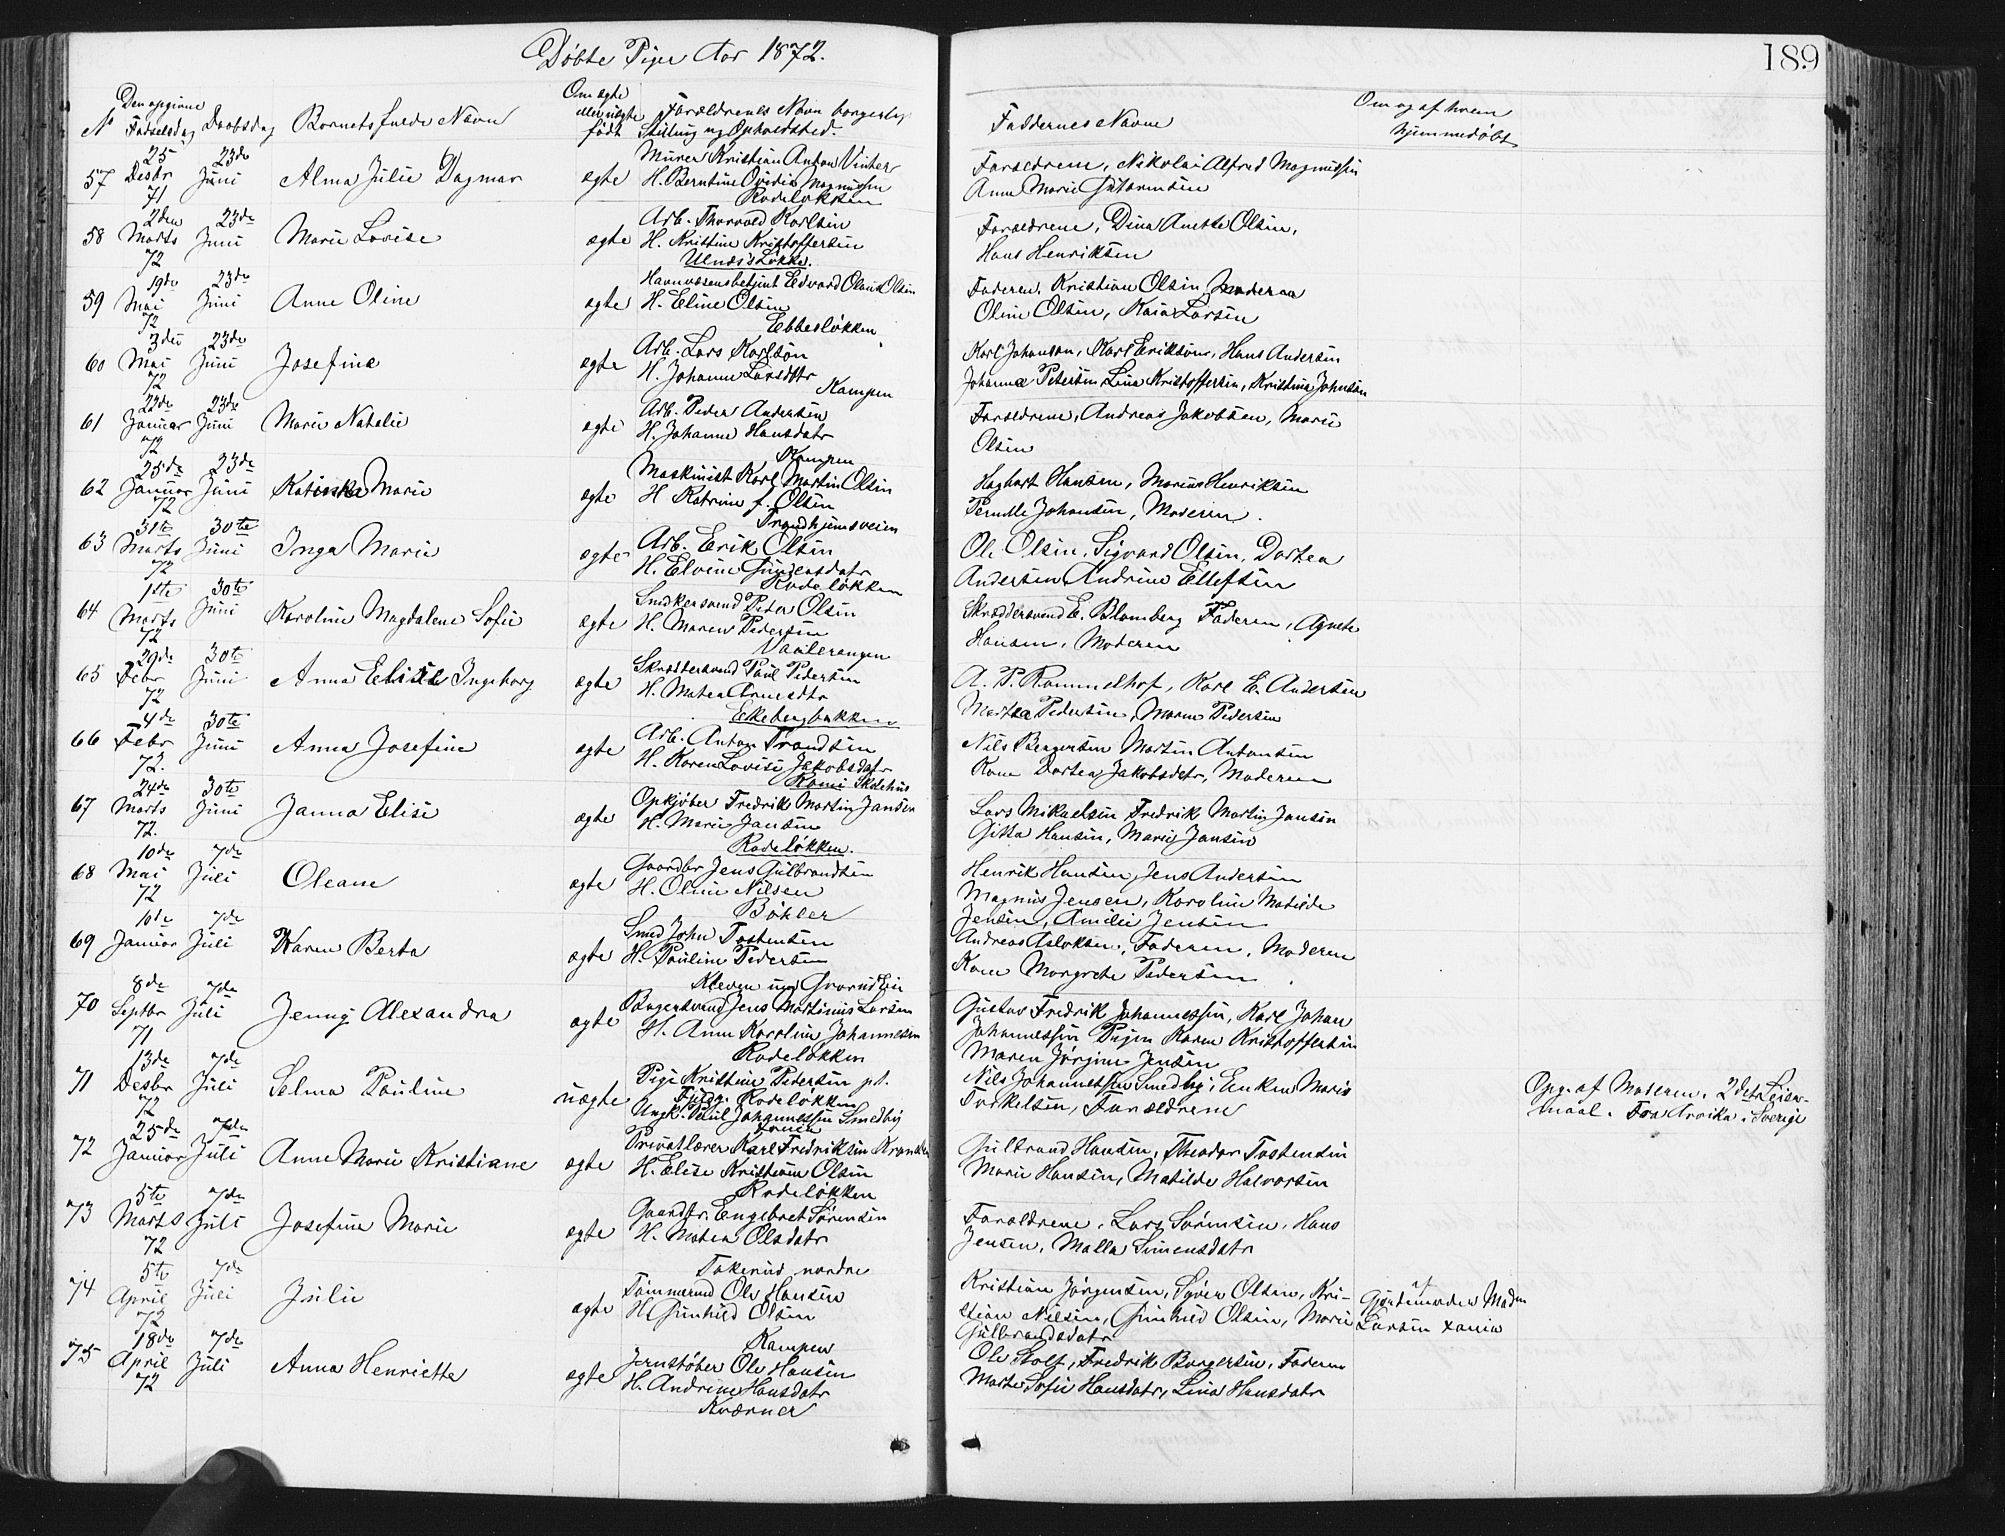 Døbte Piger Aar 1872.
189
No
Den opgivne Fødselsdag
Daabsdag
Barnets fulde Navn
Om ægte eller uægte født
Forældrenes Navn borgerlig Stilling og Opholdssted.
Faddernes Navne
Om og af hvem hjemmedøbt
57
25 Desbr 71
23de Juni
Alma Julie Dagmar
ægte
Murer Kristian Anton Vinter
H. Berntine Ovidia Magnussen
Rodeløkken
Forældrene, Nikolai Alfred Magnussen
Anne Marie Guttormsen
58
2den Marts 72
23de Juni
Marie Lovise
ægte
Arb. Thorvald Karlsen
H. Kristine Kristoffersen
Ulnæs's Løkke.
Forældrene, Dina Anette Olsen,
Hans Henriksen
59
19de Mai 72
23de Juni
Anne Oline
ægte
Havnvæsensbetjent Edvard Olaus Olsen
H. Eline Olsen
Ebbesløkken
Faderen, Kristian Olsen, Moderen
Oline Olsen, Kaia Larsen
60
3die Mai 72
23de Juni
Josefine
ægte
Arb. Lars Karlsøn
H. Johanne Larsdtr
Kampen
Karl Johanson, Karl Eriksøn, Hans Andersen
Johanna Petersen Lina Kristoffersen, Kristina Johnsen
61
22de Januar 72
23de Juni
Marie Natalie
ægte
Arb. Peder Andersen
H. Johanne Hansdatr
Kampen
Forældrene, Andreas Jakobsen, Marie
Olsen
62
25de Januar 72
23de Juni
Katinka Marie
ægte
Maskinist Karl Martin Olsen
H Katrine f. Olsen
Trondhjemsveien
Hagbart Hansen, Marius Henriksen
Pernille Johansen, Moderen.
63
31te Marts 72
30te Juni
Inga Marie
ægte
Arb. Erik Olsen
H. Elvine Gundersdatr
Rodeløkken
Ole Olsen, Sigvard Olsen, Dortea
Andersen Andrine Ellefsen
64
1ste Marts 72
30te Juni
Karoline Magdalene Sofie
ægte
Snedkersvend Peter Olsen
H. Maren Pedersen
Vaalerengen
Skræddersvend E. Blomberg Faderen, Agnete
Hansen, Moderen
65
29de Febr 72
30te Juni
Anna Elise Ingeborg
ægte
Skræddersvend Paul Pedersen
H. Matea Arnesdtr
Ekebergbakken
A. P. Rommelhof, Karl E. Andersen
Martea Pedersen, Maren Pedersen
66
4de Febr 72.
30te Juni
Anna Josefine
ægte
Arb. Anton Trondsen
H. Karen Lovise Jakobsdatr
Nils Bengersen Martin Antonsen
Karen Dortea Jakobsdtr, Moderen
67
24de Marts 72.
30te Juni
Janna Elise
ægte
Opkjøber Fredrik Martin Jansen
H. Marie Jansen
Rodeløkken.
Lars Mikaelsen Fredrik Martin Jansen
Gitta Hansen, Marie Jansen
68
10de Mai 72
7de Juli
Oleane
ægte
Gaardbr Jens Gulbrandsen
H. Oline Nilsen
Bøhler
Henrik Hansen, Jens Andersen
Magnus Jensen, Karoline Matilde
Jensen, Amilie Jensen
69
10de Januar
7de Juli
Karen Berta
ægte
Smed John Tostensen
H. Pauline Pedersen
Andreas Aslaksen, Faderen, Moderen
Karen Margrete Pedersen
70
8de Septbr 71
7de Juli
Jenny Alexandra
ægte
Bagersvend Jens Martinius Larsen
H. Anne Karoline Johannesen
Rodeløkken
Gustav Fredrik Johannessen, Karl Johan
Johannessen Pigen Karen Kristoffersen
Maren Jørgine Jensen
71
13de Desbr 72
7de Juli
Selma Pauline
uægte
Pige Kristine Pedersen pt.
Rodeløkken
Ungk. Paul Johannessen Smedby
Nils Johannessen Smedby, Enken Marie
Torkelsen, Forældrene
Opg. af Moderen. 2det Leier-
maal. Fra Arvika i Sverige
72
25de Januar
7de Juli
Anne Marie Kristiane
ægte
Privatlærer Karl Fredriksen
H. Elise Kristiane Olsen
Rodeløkken
Gulbrand Hansen, Theodor Tostensen
Marie Hansen, Matilde Halvorsen
73
5te Marts 72
7de Juli
Josefine Marie
ægte
Gaardbr. Engebret Sørensen
H. Matea Olsdatr
Tokerud nordre
Forældrene, Lars Sørensen, Hans
Jensen, Malla Simensdatr
74
5te April 72
7de Juli
Julie
ægte
Tømmermd Ole Hansen
H Gunhild Olsen
Kampen
Kristian Jørgensen, Syver Olsen, Kri-
stian Nilsen, Gunhild Olsen, Marie
Gulbrandsdatr
af Gjordemoder Madm
Larsen Xania
75
18de April 72
7de Juli
Anna Henriette
ægte
Jernstøber Ole Hansen
H. Andrine Hansdatr
Kværner
Ole Stolt, Fredrik Borgersen, Faderen
Marte Sofie Hansdatr, Lina Hansdatr